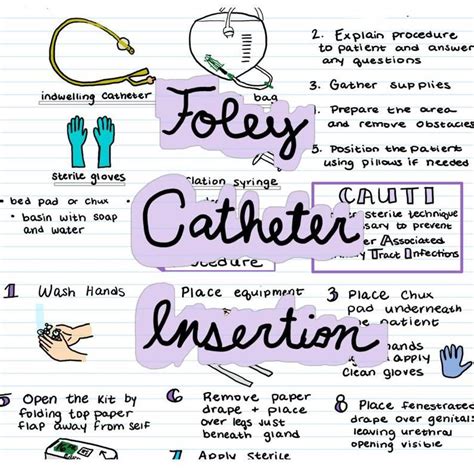 2. Explain procedure
to patient and answer
any questions
3. Gather supplies
Prepare the area
and remove obstacles
5. Position the patient
using pillows if needed
indwelling catheter
bag
Foley
sterile gloves
lation syringe
• bed pad or chux
• basin with soap
and water
Catheter
edure
CAUTI
sterile technique
ssary to prevent
er Associated
Tract Infections
1 Wash Hands
Place equipment
3 Place Chux
pad underneath
patient
Insertion
hands
apply
clean gloves
5 Open the Kit by
folding top paper
flap away from self
6 Remove paper
drape + place
over legs just
beneath gland
7 Apply Sterile
8 Place fenestrated
drape over genital
leaving urethral
opening visible